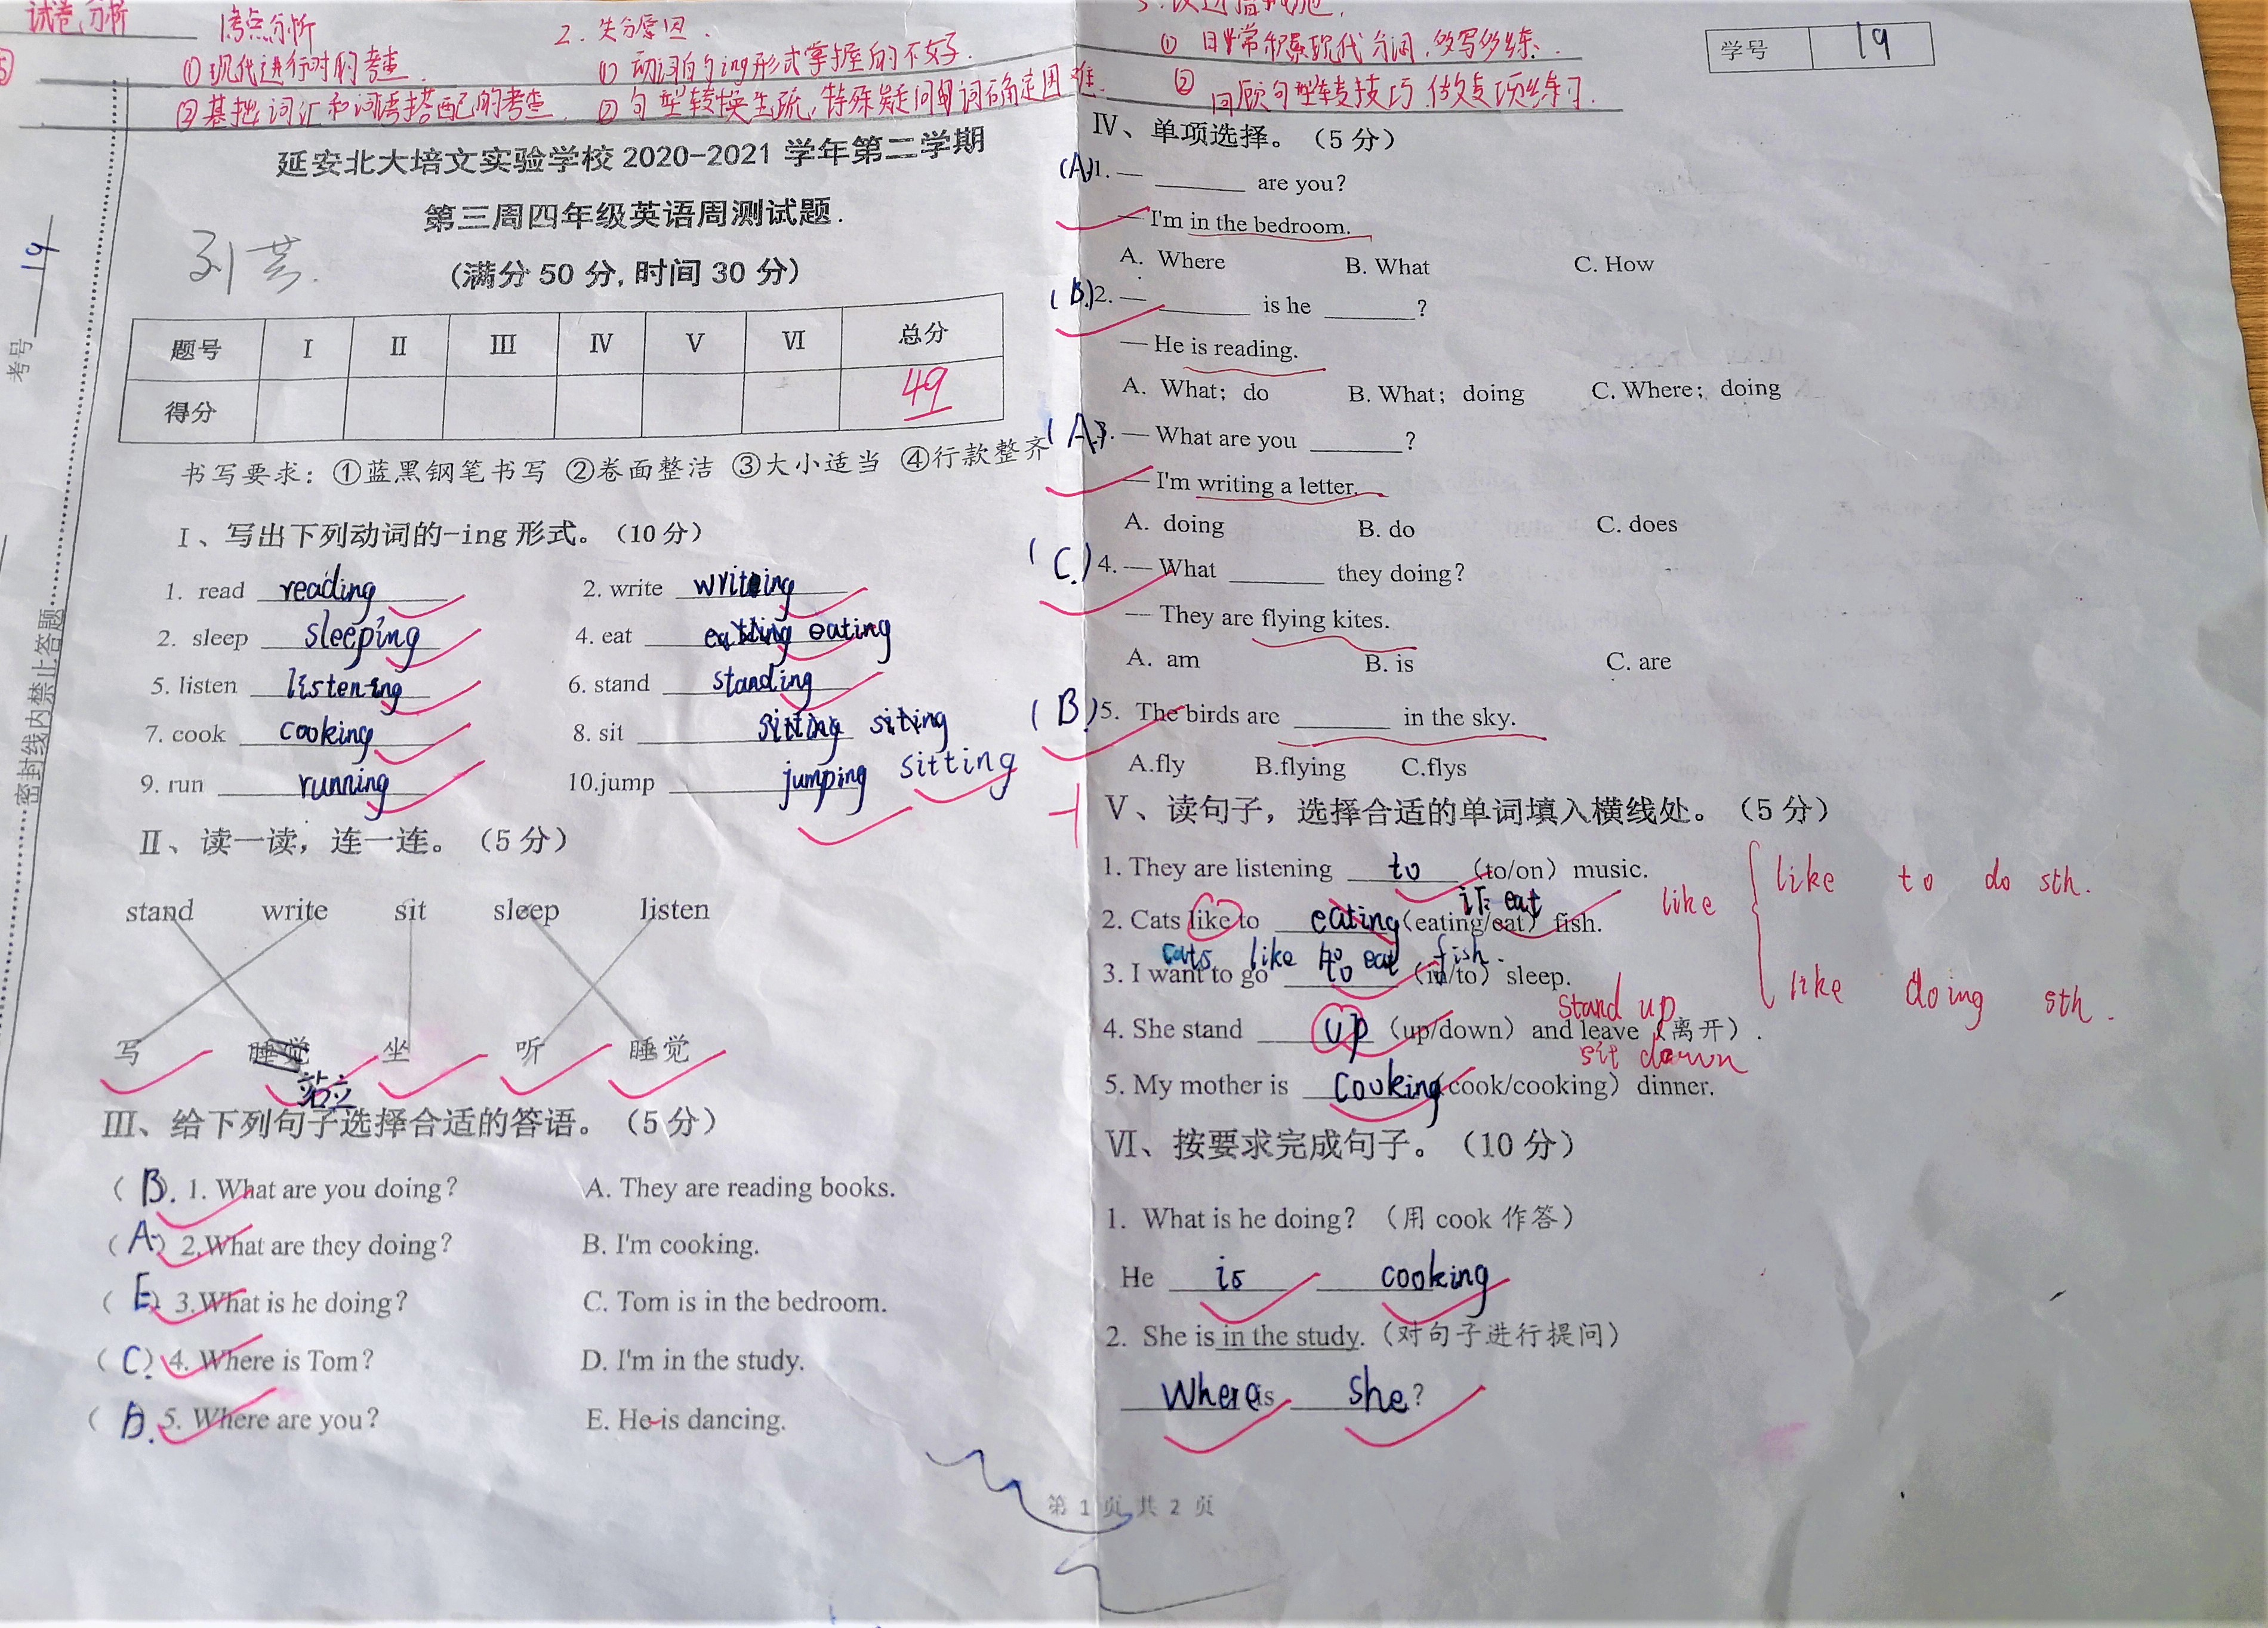 试卷分析
考点分析
①现代进行时的考查.
②基拙词汇和词语搭配的考查.
2. 失分原因.
① 动词的ing形式掌握的不好.
② 句型转换生疏,特殊疑问句词确定困难.
① 日常积累现代分词.多写多练.
② 回顾句型转技巧.做专项练习.
学号 19
考号 19
密封线内禁止答题
延安北大培文实验学校 2020-2021 学年第二学期
第三周四年级英语周测试题.
(满分 50 分,时间 30 分)
题号 Ⅰ Ⅱ Ⅲ Ⅳ Ⅴ Ⅵ 总分
得分 49
书写要求: ①蓝黑钢笔书写 ②卷面整洁 ③大小适当 ④行款整齐
Ⅰ、写出下列动词的-ing 形式。(10 分)
1. read reading 2. write writing
2. sleep sleeping 4. eat eating eating
5. listen listening 6. stand standing
7. cook cooking 8. sit sitting siting
9. run running 10.jump jumping sitting
Ⅱ、读一读，连一连。(5 分)
stand write sit sleep listen
写 睡觉 坐 听 睡觉
站立
Ⅲ、给下列句子选择合适的答语。(5 分)
( B. 1. What are you doing? A. They are reading books.
( A ) 2.What are they doing? B. I'm cooking.
( E ) 3.What is he doing? C. Tom is in the bedroom.
( C ) 4. Where is Tom? D. I'm in the study.
( D. 5. Where are you? E. He is dancing.
Ⅳ、单项选择。(5 分)
(A)1. — ______ are you?
— I'm in the bedroom.
A. Where B. What C. How
(B)2. — ______ is he ______?
— He is reading.
A. What; do B. What; doing C. Where; doing
(A)3. — What are you ______?
— I'm writing a letter.
A. doing B. do C. does
(C)4. — What ______ they doing?
— They are flying kites.
A. am B. is C. are
(B)5. The birds are ______ in the sky.
A.fly B.flying C.flys
-1
Ⅴ、读句子，选择合适的单词填入横线处。(5 分)
1. They are listening to (to/on) music.
订: eat
2. Cats like to eating (eating/eat) fish.
cats like to eat fish.
3. I want to go to (in/to) sleep.
stand up
4. She stand up (up/down) and leave (离开).
sit down
5. My mother is cooking (cook/cooking) dinner.
like
like to do sth.
like doing sth.
Ⅵ、按要求完成句子。(10 分)
1. What is he doing? (用 cook 作答)
He is cooking
2. She is in the study. (对句子进行提问)
Where is she?
第 1 页 共 2 页